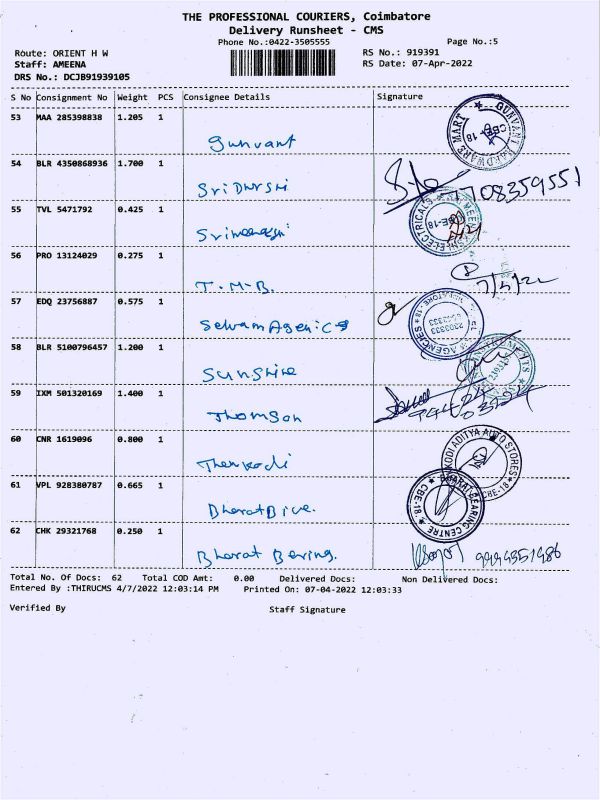 THE PROFESSIONAL COURIERS, Coimbatore
Delivery Runsheet - CMS
Phone No.:0422-3505555 Page No.:5
Route: ORIENT H W RS No.: 919391
Staff: AMEENA RS Date: 07-Apr-2022
DRS No.: DCJB91939105
S No Consignment No Weight PCS Consignee Details Signature
53 MAA 285398838 1.205 1
Gunvant
GUNVANT HARDWARES MART
CBE-18
54 BLR 4350868936 1.700 1
7708359551
55 TVL 5471792 0.425 1
ELECTRICALS
CBE-18
56 PRO 13124029 0.275 1
T.M.B.
57 EDQ 23756887 0.575 1
Selvam Agencies
AGENCIES
58 BLR 5100796457 1.200 1
Sunshine
59 IXM 501320169 1.400 1
Thomson
60 CNR 1619096 0.800 1
Thenkodi
KODI ADITYA AUTO STORES
CBE-18
61 VPL 928380787 0.665 1
BHARAT BEARING CENTRE
CBE-18.
62 CHK 29321768 0.250 1
Bharat Bering.
Total No. Of Docs: 62 Total COD Amt: 0.00 Delivered Docs: Non Delivered Docs:
Entered By :THIRUCMS 4/7/2022 12:03:14 PM Printed On: 07-04-2022 12:03:33
Verified By Staff Signature